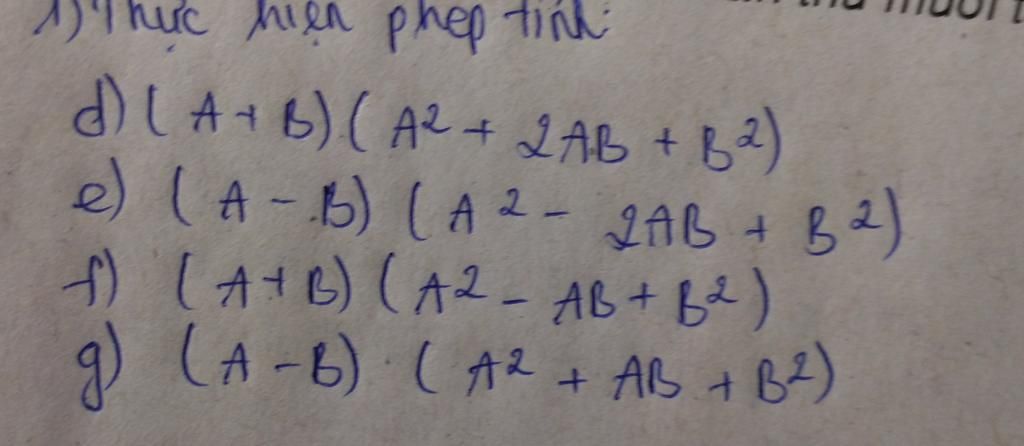 1) Thực hiện phép tính:
d) (A + B).(A² + 2AB + B²)
e) (A - B) (A² - 2AB + B²)
f) (A + B) (A² - AB + B²)
g) (A - B) . (A² + AB + B²)